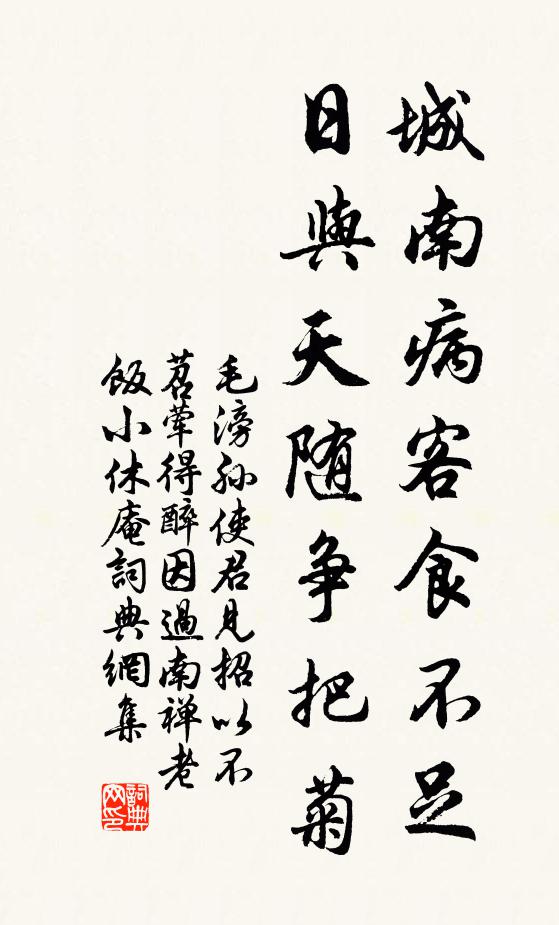 城南病客食不足
日與天随争把菊
毛滂孙使君見招以不
茗荤得醉因過南禅老
飯小休庵詞典網集
詞典网印